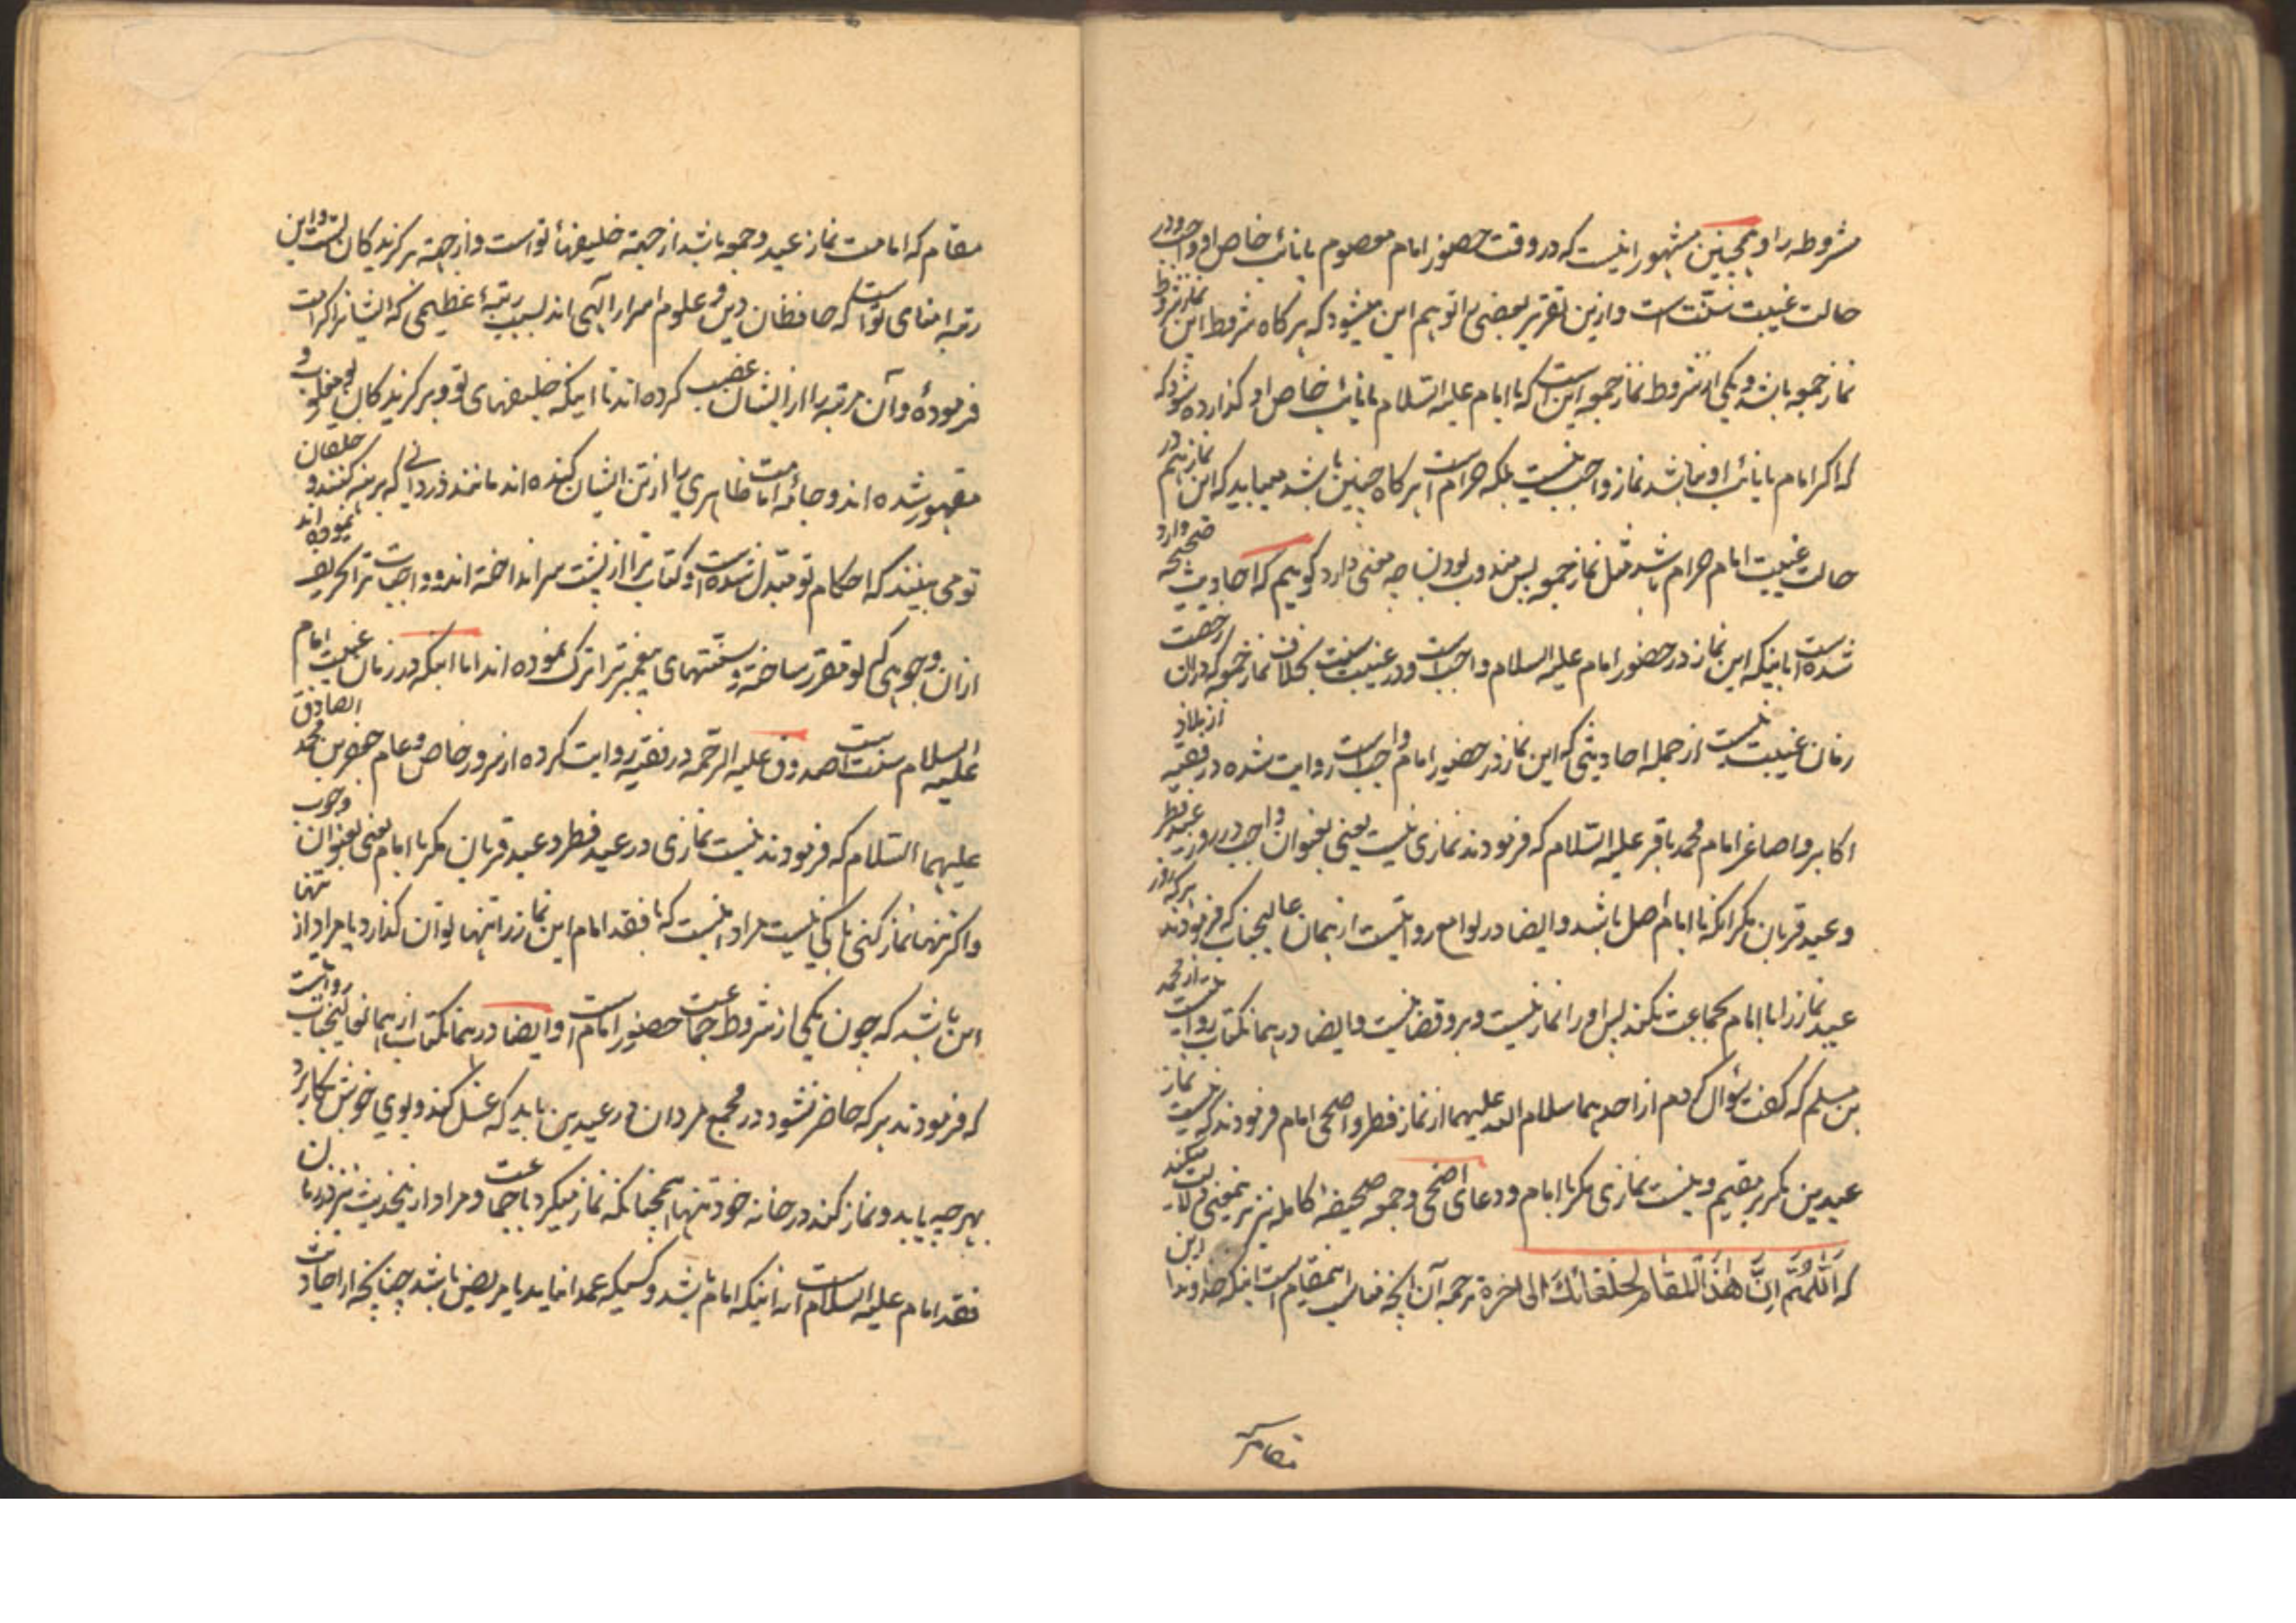 مشروطه را و همچنین مشهور اینست که در وقت حضور امام معصوم یا نائب خاص او واجب و در
حالت غیبت سنّت است و ازین تقریر بعضی را توهم این میشود که هر گاه شروط این نماز شروط
نماز جمعه باشد و یکی از شروط نماز جمعه این است که با امام علیه السّلام یا نائب خاص او گذارده شود که
که اگر امام یا نائب او نباشد نماز واجب نیست بلکه حرام است هر گاه چنین باشد میباید که این نماز هم در
حالت غیبت امام حرام باشد مثل نماز جمعه پس مندوب بودن آن چه معنی دارد گوییم که احادیث صحیحه وارد
شده است باینکه این نماز در حضور امام علیه السلام واجب است و در غیبت سنت بخلاف نماز جمعه که در آن رخصت
زمان غیبت نیست از جمله احادیثی که این نماز در حضور امام واجب است روایت شده در فقیه از ملاذ
اکابر و اصاغر امام محمد باقر علیه السّلام که فرمودند نمازی نیست یعنی بعنوان واجب در روز عید فطر
و عید قربان مگر آنکه با امام اصل باشد و ایضا در لوامع روایتست از همان عالیجناب که فرمودند هر که در روز
عید نماز را با امام بجماعت نکند پس او را نماز نیست و برو قضا نیست و ایضا در همانکتاب روایتست از محمد
بن مسلم که گفت سؤال کردم از احدهما سلام الله علیهما از نماز فطر و اضحی امام فرمودند که نیست نماز
عیدین مگر بر مقیم و نیست نمازی مگر با امام و دعای اضحی و جمعه صحیفه کامله نیز بر همین معنی دلالت میکند
که اَللّٰهُمَّ اِنَّ هٰذَا الْمَقَامَ لِخُلَفَائِكَ الی اخره ترجمه آن آنچه مناسب اینمقام است اینکه خداوندا این
مقام که
مقام که امامت نماز عید و جمعه باشد از جهة خلیفهاء تو است و از جهة برگزیدکان تست و این
رتبه امنای تو است که حافظان دین و علوم اسرار آلهی اند بسبب رتبهٔ عظیمی که ایشانرا کرامت
فرمودهٔ و آن مرتبه را از ایشان غصب کرده اند تا اینکه خلیفهای تو و برگزیدکان تو مغلوب و
مقهور شده اند و جامهٔ امامت ظاهری را از تن ایشان کنده اند مانند دزدانی که برهنه کنند و خلعان
تو می بینند که احکام تو مبّدل شده است و کتاب ترا از پشت سر انداخته اند و واجبات ترا تحریف نموده اند
از آن وجوهی که تو مقرر ساختهٔ و سنّتهای پیغمبر ترا ترک نموده اند اما اینکه در زمان غیبت امام
علیه السلام سنت است صدوق علیه الرّحمه در فقیه روایت کرده از سرور خاص و عام جعفر بن محمد الصادق
علیهما السّلام که فرمودند نیست نمازی در عید فطر و عید قربان مگر با امام یعنی بعنوان وجوب
و اگر تنها نماز کنی باکی نیست مراد اینست که با فقد امام این نماز را تنها توان گذارد یا مراد از تنها
این باشد که چون یکی از شروط جماعت حضور امام است و ایضا در همانکتاب از همانعالیجناب روایتست
که فرمودند هر که حاضر نشود در مجمع مردان در عیدین باید که غسل کند و بوی خوش بکار برد
بهر چه یابد و نماز کند در خانه خود تنها همچنانکه نماز میکرد با جماعت و مراد از اینحدیث نیز در زمان
فقد امام علیه السلام است نه اینکه امام باشد و کسیکه عمدا نیاید یا مریض باشد چنانچه از احادیث